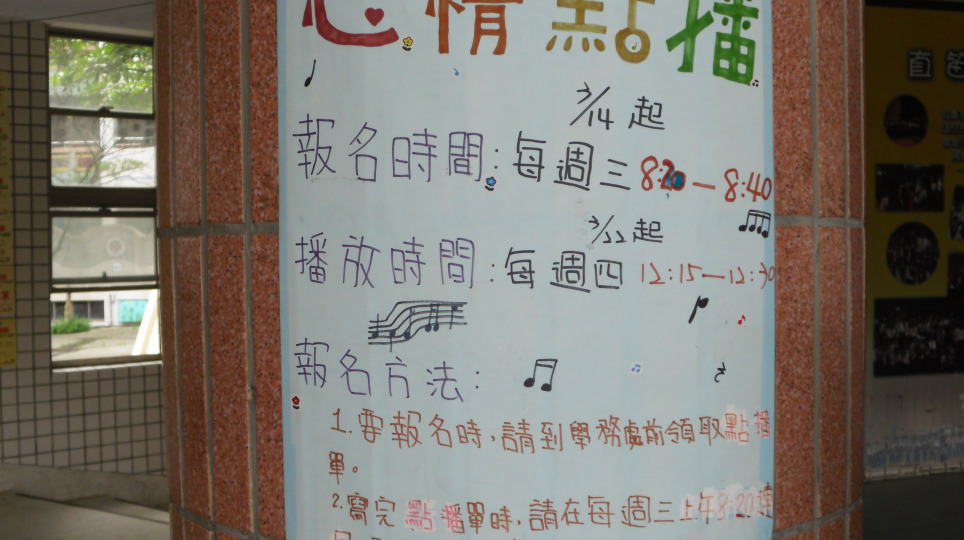 心情點播
3/14起
報名時間:每週三8:20—8:40
3/22起
播放時間:每週四12:15—12:30
報名方法:
1.要報名時,請到學務處前領取點播
單。
2.寫完點播單時,請在每週三上午8:20達
直笛